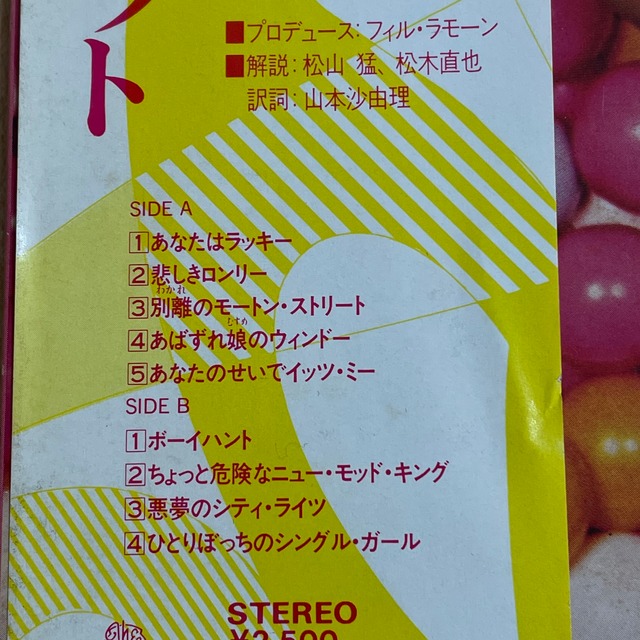 ット
■プロデュース:フィル・ラモーン
■解説:松山 猛、松木直也
訳詞:山本沙由理
SIDE A
1あなたはラッキー
2悲しきロンリー
わかれ
3別離のモートン・ストリート
むすめ
4あばずれ娘のウィンドー
5あなたのせいでイッツ・ミー
SIDE B
1ボーイハント
2ちょっと危険なニュー・モッド・キング
3悪夢のシティ・ライツ
4ひとりぼっちのシングル・ガール
STEREO
¥2,500